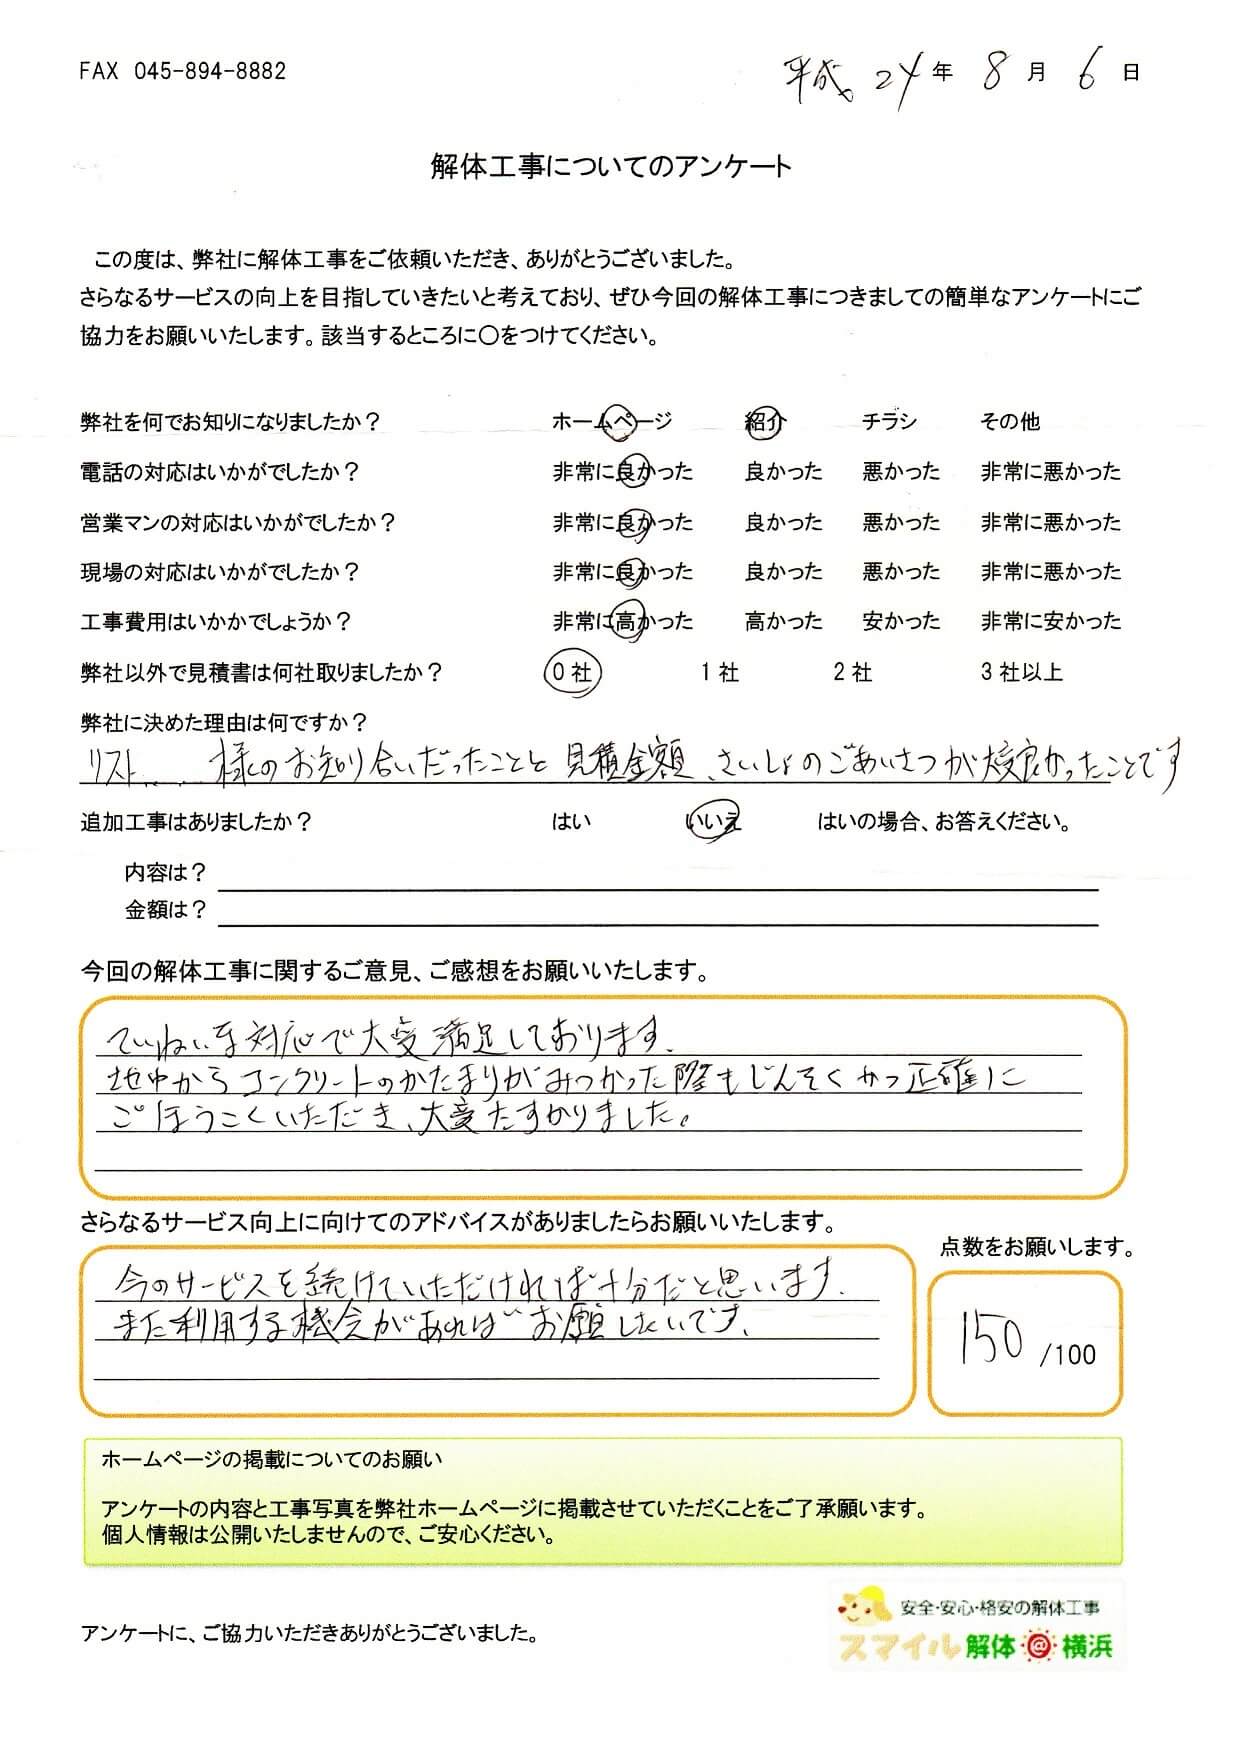 FAX 045-894-8882
平成 24年 8月 6日
解体工事についてのアンケート
この度は、弊社に解体工事をご依頼いただき、ありがとうございました。
さらなるサービスの向上を目指していきたいと考えており、ぜひ今回の解体工事につきましての簡単なアンケートにご
協力をお願いいたします。該当するところに〇をつけてください。
弊社を何でお知りになりましたか？ ホームページ 紹介 チラシ その他
電話の対応はいかがでしたか？ 非常に良かった 良かった 悪かった 非常に悪かった
営業マンの対応はいかがでしたか？ 非常に良かった 良かった 悪かった 非常に悪かった
現場の対応はいかがでしたか？ 非常に良かった 良かった 悪かった 非常に悪かった
工事費用はいかかでしょうか？ 非常に高かった 高かった 安かった 非常に安かった
弊社以外で見積書は何社取りましたか？ 0社 1社 2社 3社以上
弊社に決めた理由は何ですか？
リスト.... 様のお知り合いだったことと 見積金額、さいしょのごあいさつが大変良かったことです
追加工事はありましたか？ はい いいえ はいの場合、お答えください。
内容は？
金額は？
今回の解体工事に関するご意見、ご感想をお願いいたします。
ていねいな対応で大変満足しております。
地中からコンクリートのかたまりがみつかった際もじんそくかつ正確に
ごほうこくいただき、大変たすかりました。
さらなるサービス向上に向けてのアドバイスがありましたらお願いいたします。
点数をお願いします。
今のサービスを続けていただければ十分だと思います.
また利用する機会があればお願いしたいです、
150 /100
ホームページの掲載についてのお願い
アンケートの内容と工事写真を弊社ホームページに掲載させていただくことをご了承願います。
個人情報は公開いたしませんので、ご安心ください。
アンケートに、ご協力いただきありがとうございました。
安全・安心・格安の解体工事
スマイル解体@横浜